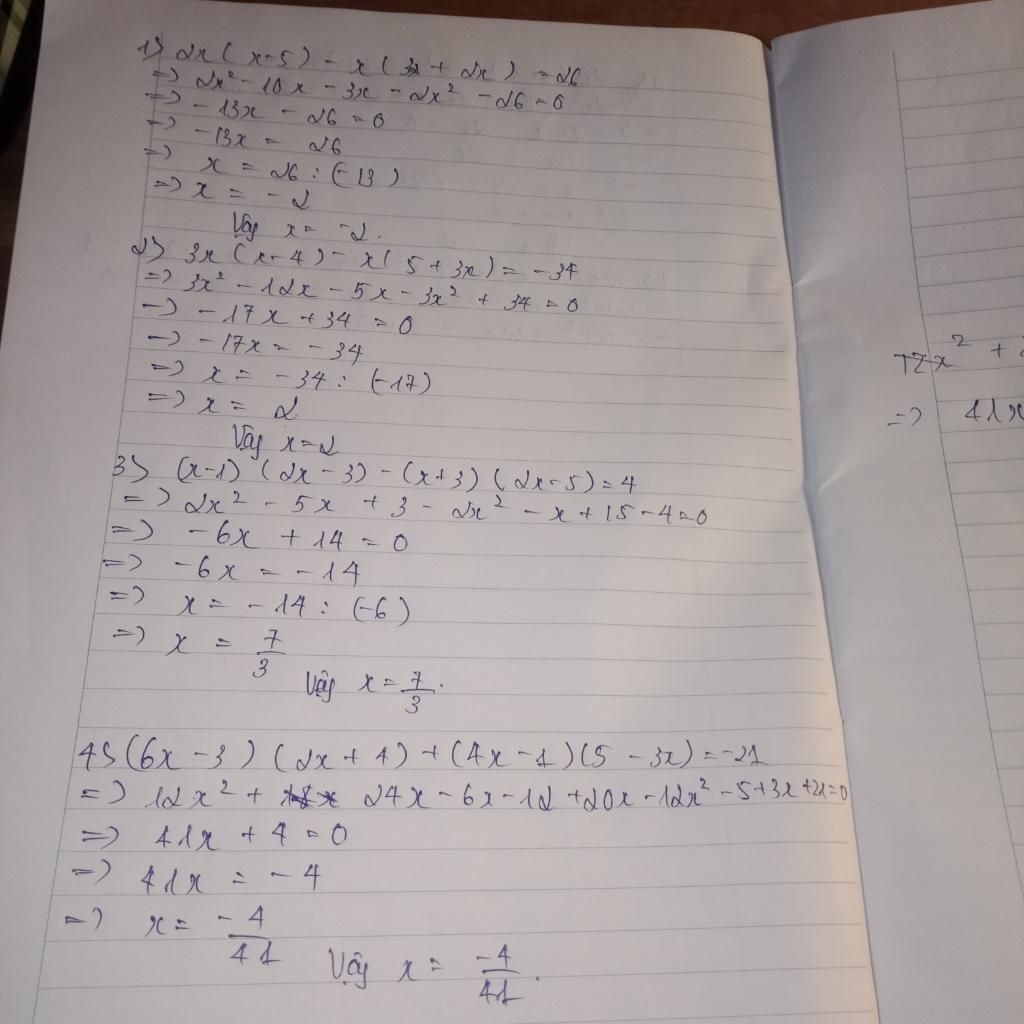 1) 2x ( x-5 ) - x ( 3 + 2x ) = 26
=> 2x² - 10x - 3x - 2x² - 26 = 0
=> -13x - 26 = 0
=> -13x = 26
=> x = 26 : (-13)
=> x = -2
Vậy x = -2.
2) 3x (x-4) - x( 5 + 3x ) = -34
=> 3x² - 12x - 5x - 3x² + 34 = 0
=> -17x + 34 = 0
=> -17x = -34
=> x = -34 : (-17)
=> x = 2
Vậy x = 2
3) (x-1) (2x - 3) - (x+3) (2x-5) = 4
=> 2x² - 5x + 3 - 2x² - x + 15 - 4 = 0
=> -6x + 14 = 0
=> -6x = -14
=> x = -14 : (-6)
=> x = 7/3
Vậy x = 7/3.
4) (6x - 3) (2x + 4) + (4x - 1) (5 - 3x) = -21
=> 12x² + 24x - 6x - 12 + 20x - 12x² - 5 + 3x + 21 = 0
=> 41x + 4 = 0
=> 41x = -4
=> x = -4/41
Vậy x = -4/41.
12x² +
=> 41x